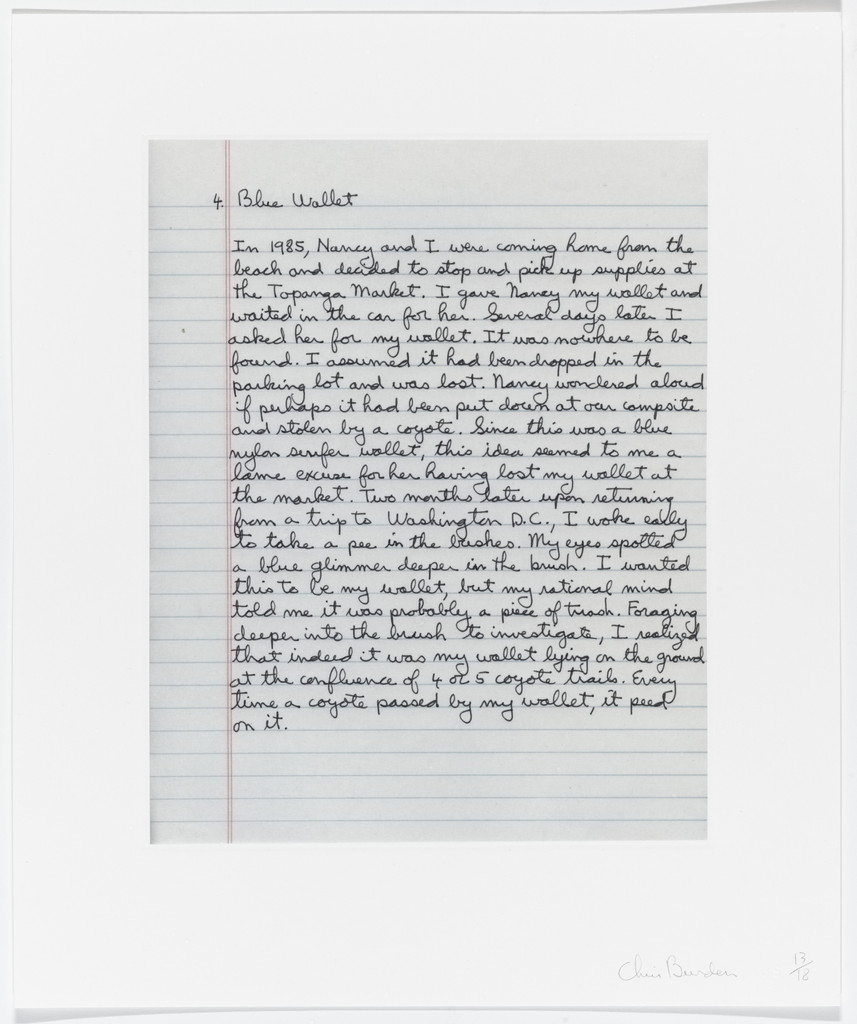 4. Blue Wallet
In 1985, Nancy and I were coming home from the
beach and decided to stop and pick up supplies at
the Topanga Market. I gave Nancy my wallet and
waited in the car for her. Several days later I
asked her for my wallet. It was nowhere to be
found. I assumed it had been dropped in the
parking lot and was lost. Nancy wondered aloud
if perhaps it had been put down at our campsite
and stolen by a coyote. Since this was a blue
nylon surfer wallet, this idea seemed to me a
lame excuse for her having lost my wallet at
the market. Two months later upon returning
from a trip to Washington D.C., I woke early
to take a pee in the bushes. My eyes spotted
a blue glimmer deeper in the brush. I wanted
this to be my wallet, but my rational mind
told me it was probably a piece of trash. Foraging
deeper into the brush to investigate, I realized
that indeed it was my wallet lying on the ground
at the confluence of 4 or 5 coyote trails. Every
time a coyote passed by my wallet, it peed
on it.
Chris Burden 13/18